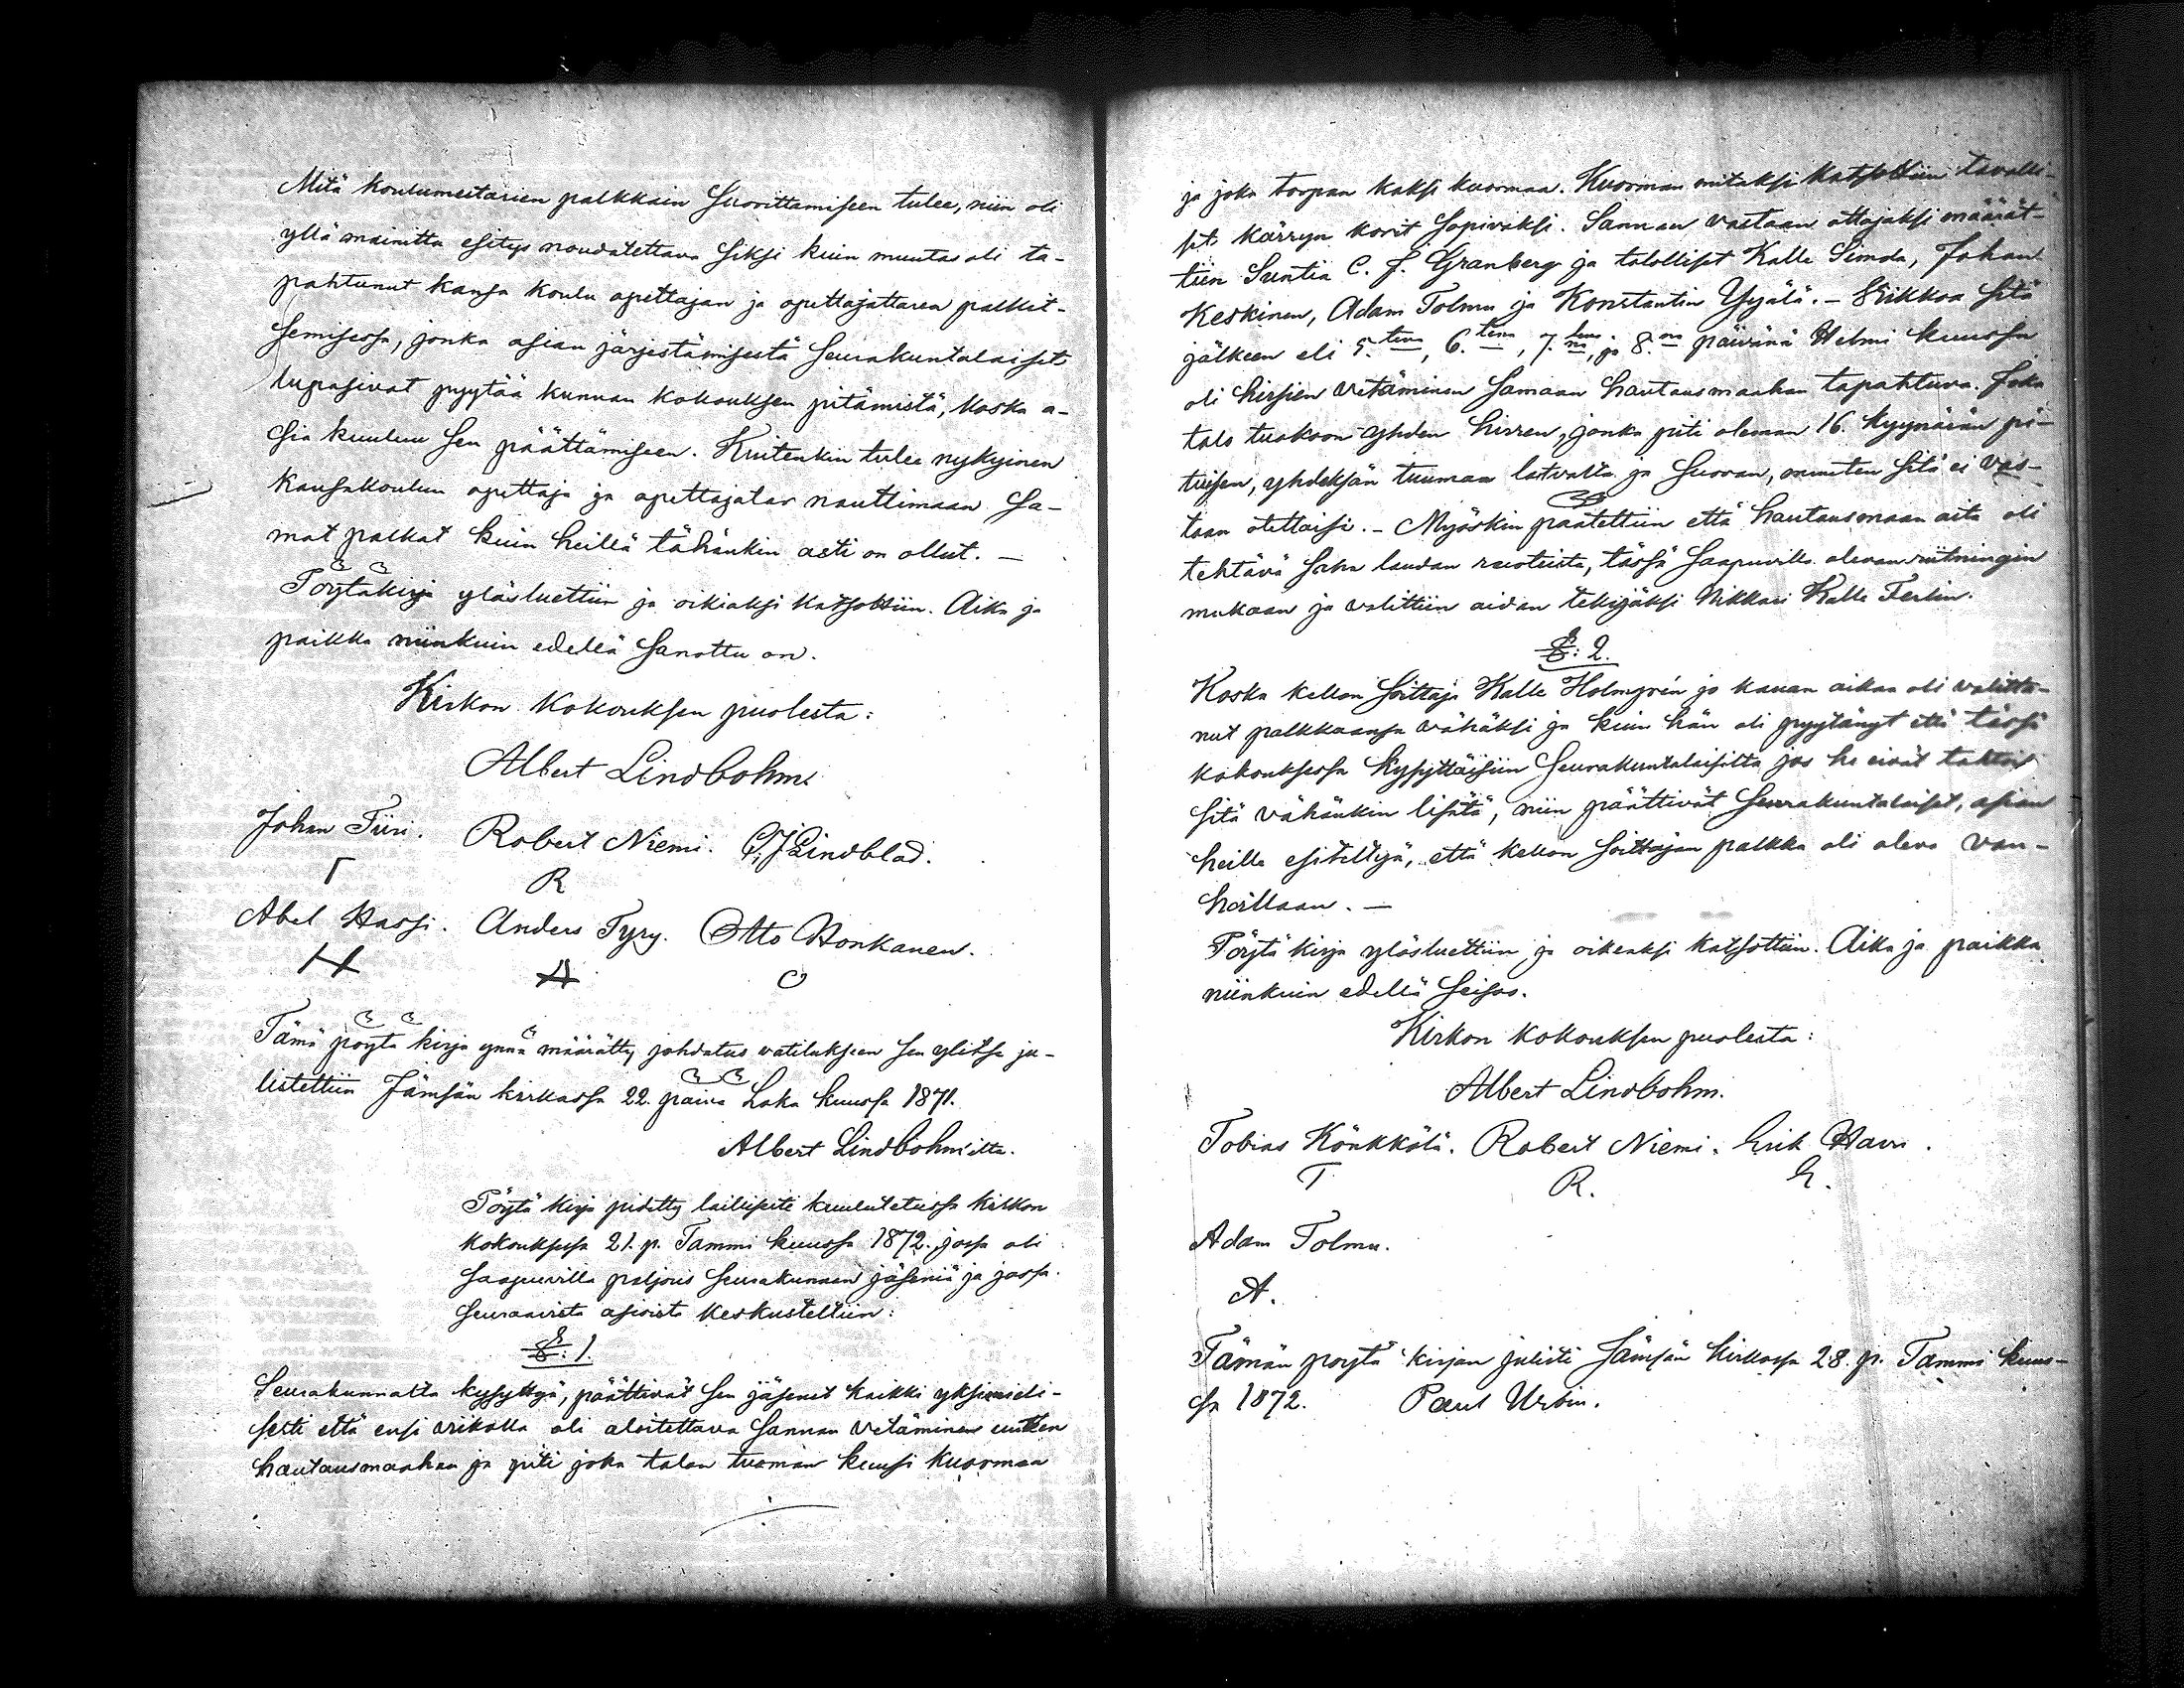 Mitä koulumestarien palkkain suorittamiseen tulee, niin oli
yllä mainittu esitys noudatettava siksi kuin muutos oli ta-
pahtunut kansa koulu opettajan ja opettajattaren palkit-
semisessa, jonka asian järjestämisestä Seurakuntalaiset
lupasivat pyytää kunnan kokouksen pitämistä, koska a-
sia kuuluu sen päättämiseen. Kuitenkin tulee nykyinen
kansakoulun opettaja ja opettajatar nauttimaan sa-
mat palkat kuin heillä tähänkin asti on ollut. —
Pöytäkirja ylösluettiin ja oikiaksi katsottiin. Aika ja
paikka niinkuin edellä sanottu on.
Kirkon kokouksen puolesta:
Albert Lindbohm.
Johan Tiiri. Robert Niemi. C. J. Lindblad.
T R
Abel Hassi. Anders Tyry. Otto Honkanen.
H A O
Tämä pöytä kirja ynnä määrätty johdatus valitukseen sen ylitse ju-
listettiin Jämsän kirkossa 22. päivä Loka kuussa 1871.
Albert Lindbohm'ilta.
Pöytä kirja pidetty laillisesti kuulutetussa kirkon
kokouksessa 21. p. Tammi kuussa 1872. jossa oli
saapuvilla paljous seurakunnan jäseniä ja jossa
seuraavista asioista keskusteltiin:
§: 1.
Seurakunnalta kysyttyä, päättivät sen jäsenet kaikki yksimieli-
sesti että ensi viikolla oli aloitettava sannan vetäminen uuteen
hautausmaahan ja piti joka talon tuoman kuusi kuormaa
ja joka torpan kaksi kuormaa. Kuorman mitaksi katsottiin tavalli-
set kärryn korit sopivaksi. Sannan vastaan ottajaksi määrät-
tiin Suntia C. J. Granberg ja talolliset Kalle Simola, Johan
Keskinen, Adam Tolmu ja Konstantin Yijälä. — Viikkoa sitä
jälkeen eli 5.tenä, 6.tena, 7.tenä, ja 8.na päivänä Helmi kuussa
oli hirsien vetäminen samaan hautausmaahan tapahtuva. Joka
talo tuokoon yhden hirren, jonka piti oleman 16. kyynärän pi-
tuisen, yhdeksän tuumaa latvalta ja suoran, muuten sitä ei vas-
taan otettaisi. — Myöskin päätettiin että hautausmaan aita oli
tehtävä saha laudan ruoteista, tässä saapuvilla olevan riitningin
mukaan ja valittiin aidan tekijäksi Nikkari Kalle Ferlin.
§: 2.
Koska kellon soittaja Kalle Holmgrén jo kauan aikaa oli valitta-
nut palkkaansa vähäksi ja kuin hän oli pyytänyt että tässä
kokouksessa kysyttäisiin Seurakuntalaisilta jos he eivät tahtoisi
sitä vähänkin lisätä, niin päättivät Seurakuntalaiset, asian
heille esiteltyä, että kellon soittajan palkka oli oleva van-
hoillaan. —
Pöytä kirja ylösluettiin ja oikeaksi katsottiin. Aika ja paikka
niinkuin edellä seisoo.
Kirkon kokouksen puolesta:
Albert Lindbohm.
Tobias Könkkölä. Robert Niemi. Erik Havu.
T R. E.
Adam Tolmu.
A.
Tämän pöytä kirjan julisti Jämsän kirkossa 28. p. Tammi kuus-
sa 1872. Paul Urbin.